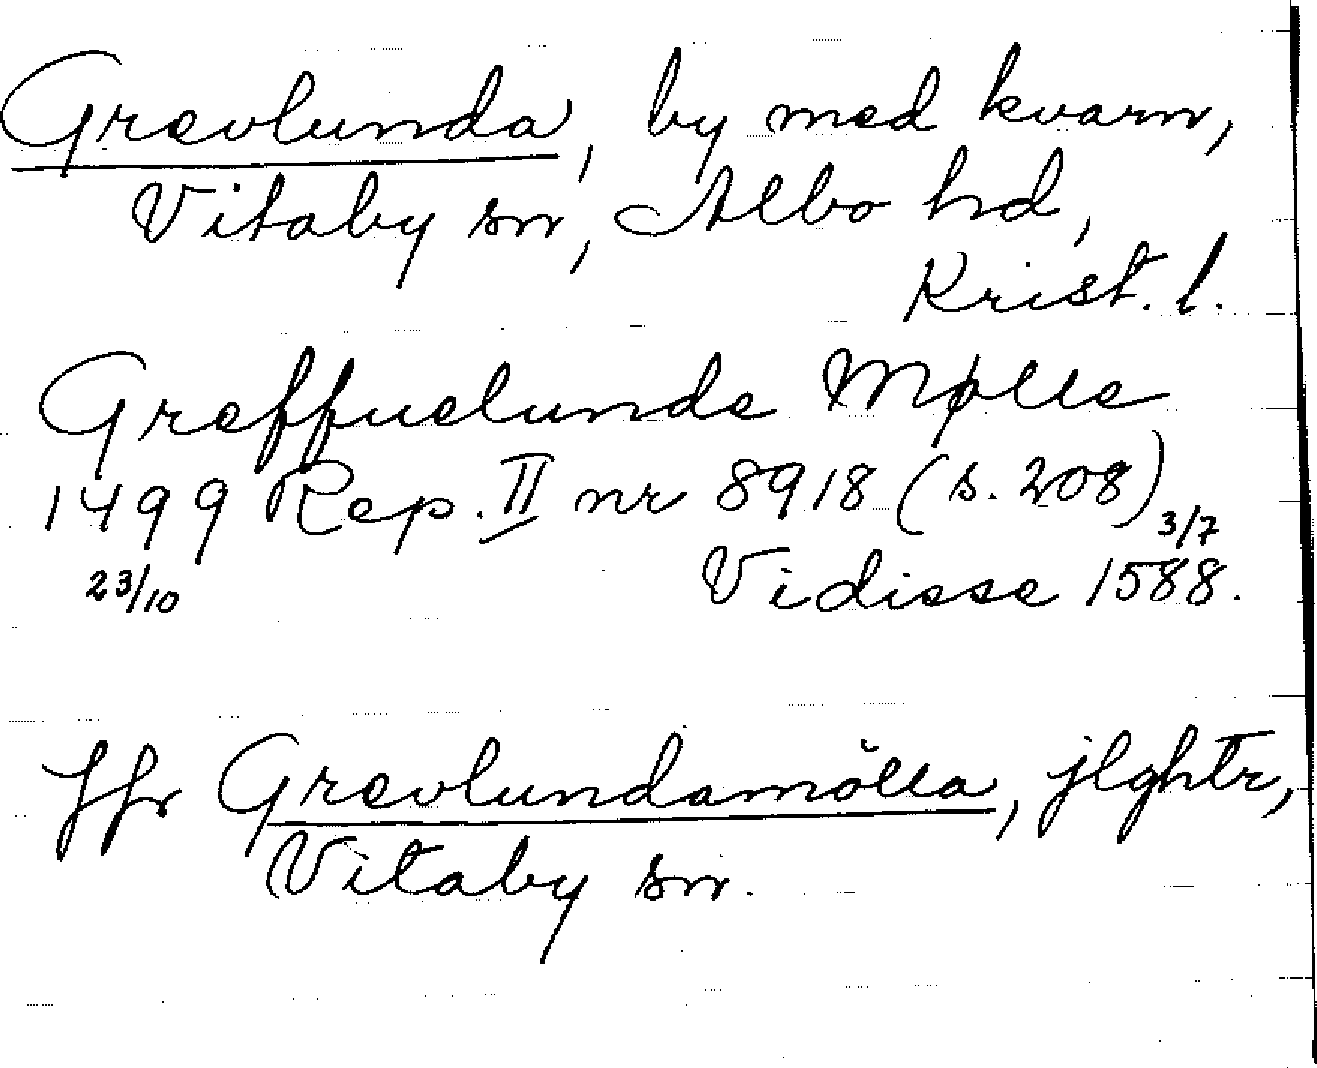 Grevlunda, by med kvarn,
Vitaby sn, Albo hd,
Krist. l.
Greffuelunde Mølle
1499 Rep. II nr 8918 (s. 208)
23/10 Vidisse 3/7 1588.
Jfr Grevlundamölla, jlghtr,
Vitaby sn.